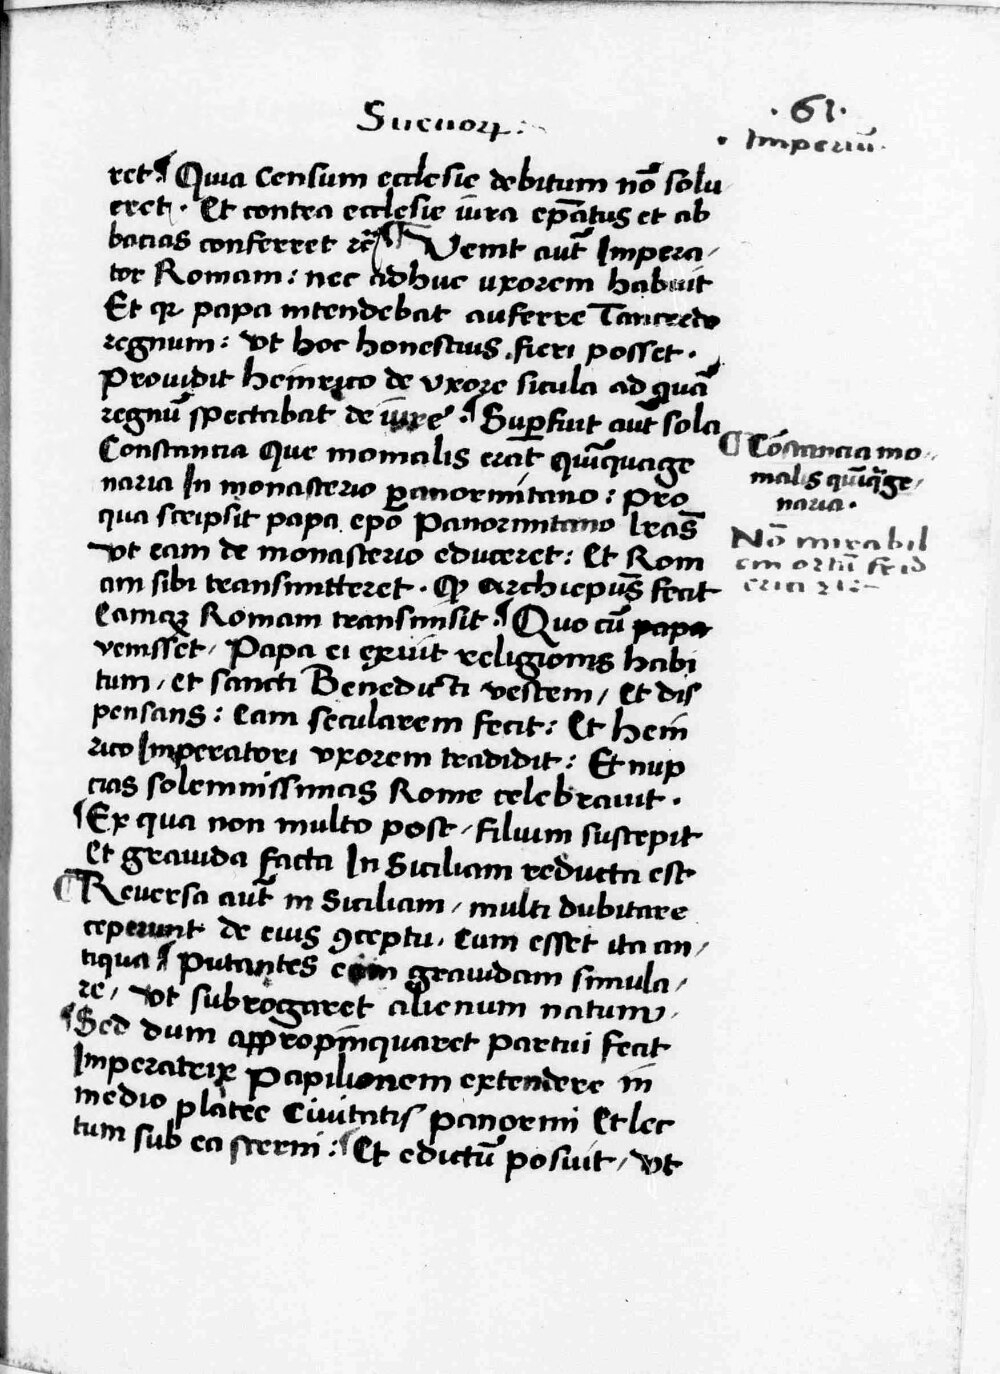 Sueuoꝝ:
·61·
· Imperiū·
ret· ¶ Quia censum ecclesie debitum nō solu
eret· Et contra ecclesie iura ep̄atus et ab
bacias conferret ¶ Venit aūt Impera-
tor Romam: nec adhuc uxorem habuit
Et qꝛ papa intendebat auferre Tancredo
regnum: vt hoc honestius fieri posset·
Prouidit heinrico de vxore sicula ad quā
regnū spectabat de iure· ¶ Suꝑfuit aūt sola
Constancia Que monialis erat quīquage
naria In monasterio ꝑanormitano: pro
qua scripsit papa epō Panormitano lrās
vt eam de monasterio educeret: Et Rom
am sibi transmitteret· Qđ archiepūs fecit
Eamqꝫ Romam transmisit· ¶ Quo cū papa
venisset, Papa ei exuit religionis habi
tum, et sancti Benedicti vestem, Et dis
pensans: Eam secularem fecit: Et hein
rico Imperatori vxorem tradidit: Et nup
cias solemnissimas Rome celebrauit·
¶ Ex qua non multo post, filium suscepit
Et grauida facta In Siciliam reducta est
¶ Reuersa aūt in Siciliam, multi dubitare
ceperunt de eius ꝯceptu, Cum esset ita an,
tiqua ¶ Putantes eam grauidam simula,
re, vt subrogaret alienum natum,
¶ Sed dum appropinquaret partui fecit
Imperatrix papilionem extendere in
medio platee Ciuitatis panormi Et lec
tum sub ea sterni: ¶ Et edictū posuit, vt
¶ Cōstancia mo-
nialis quīqꝫge,
naria·
Nō mirabil
em ortū frid
erici